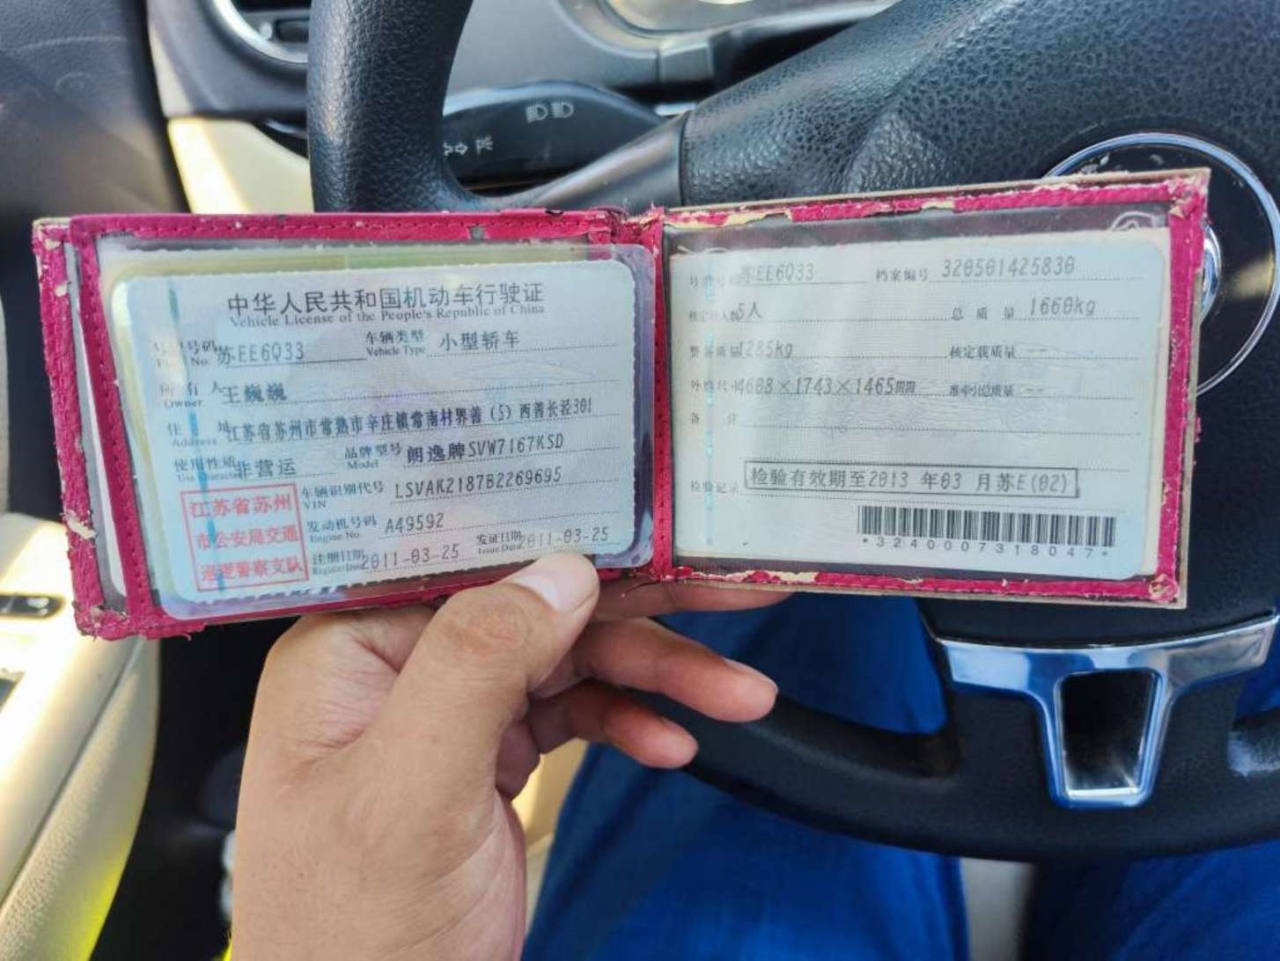 中华人民共和国机动车行驶证
Vehicle License of the People's Republic of China
号牌号码 苏EE6Q33 车辆类型 小型轿车
Plate No. Vehicle Type
所有人 王巍巍
Owner
住址 江苏省苏州市常熟市辛庄镇常南村界善(5)西善长泾301
Address
使用性质 非营运 品牌型号 朗逸牌SVW7167KSD
Use Character Model
江苏省苏州
市公安局交通
巡逻警察支队
车辆识别代号 LSVAK2187B2269695
VIN
发动机号码 A49592
Engine No.
注册日期 2011-03-25 发证日期 2011-03-25
Register Date Issue Date
号牌号码 苏EE6Q33 档案编号 320501425830
核定载人数 5人 总质量 1660kg
整备质量 1285kg 核定载质量 --
外廓尺寸 4608×1743×1465mm 准牵引总质量 --
备注
检验记录 检验有效期至2013 年03 月苏E(02)
*3240007318047*